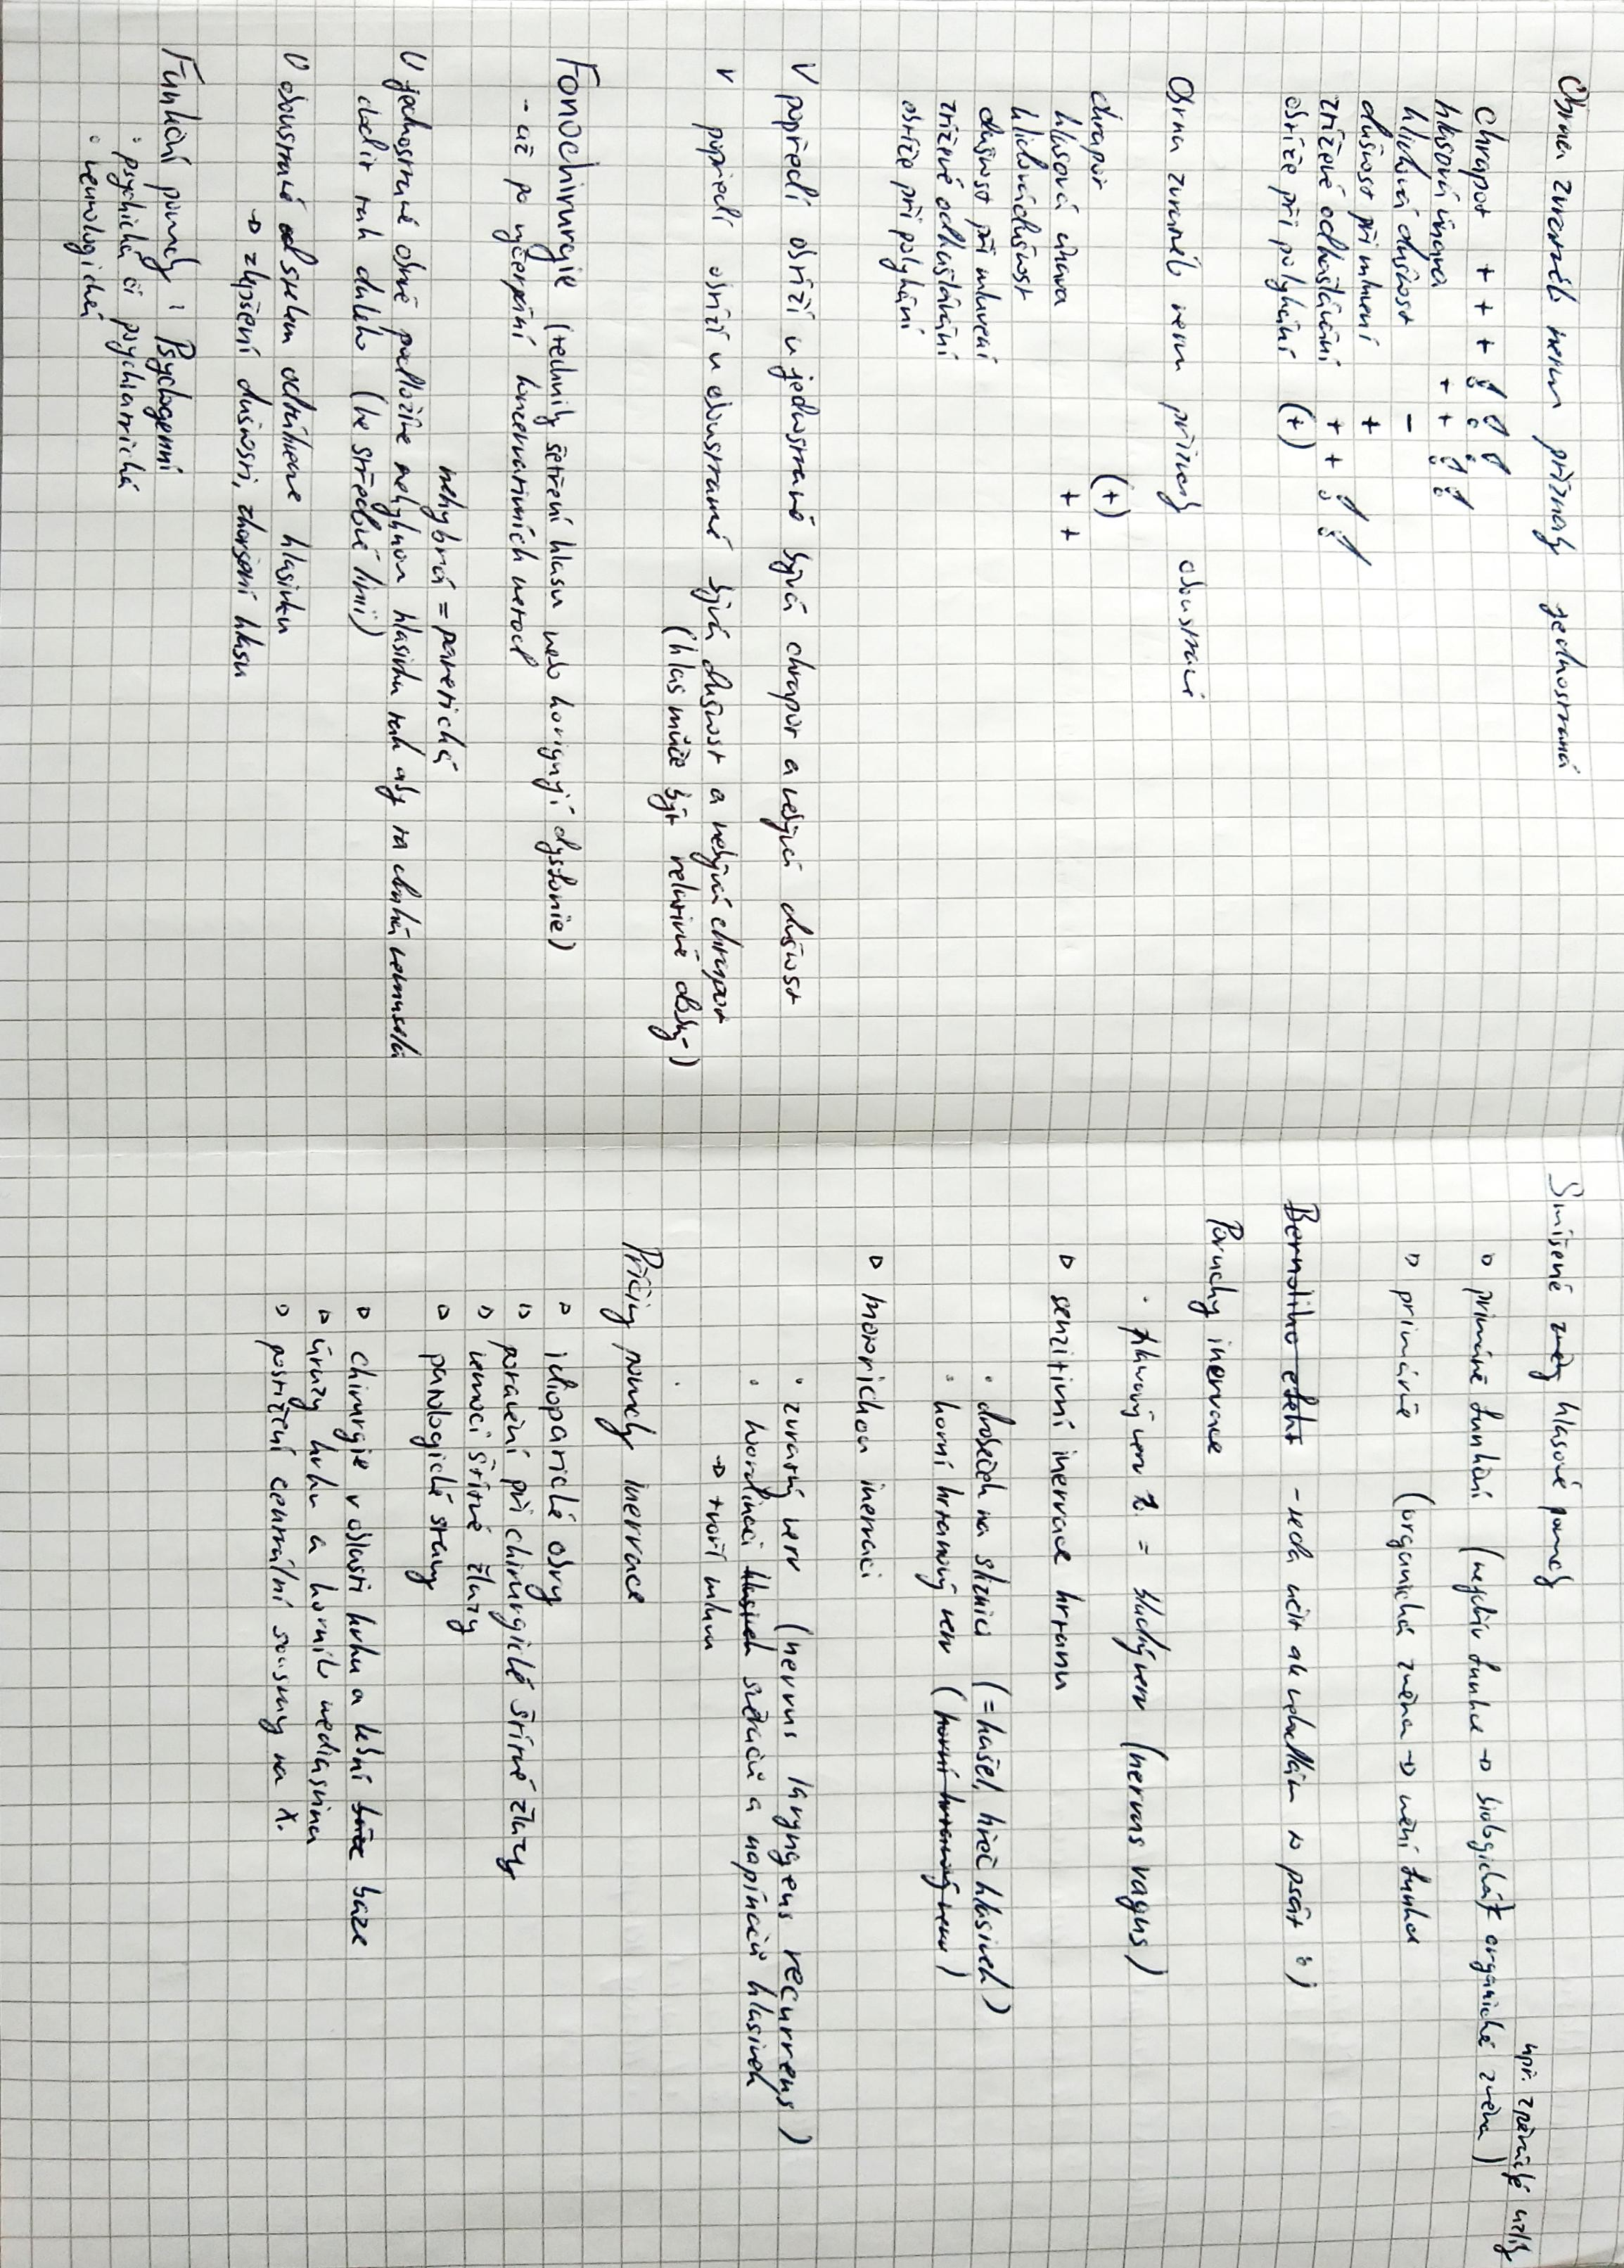 Obrna zvratného nervu příznaky jednostranná
chrapot + + +
hlasová únava + +
klidová dušnost -
dušnost při mluvení +
ztížené odkašlávání + +
obtíže při polykání (+)
Obrna zvratného nervu příznaky oboustranné
chrapot (+)
hlasová únava + +
klidová dušnost
dušnost při mluvení
ztížené odkašlávání
obtíže při polykání
V popředí obtíží u jednostranné bývá chrapot a nebývá dušnost
V popředí obtíží u oboustranné bývá dušnost a nebývá chrapot
(hlas může být relativně dobrý)
Fonochirurgie (techniky šetření hlasu nebo korigují dysfonie)
- až po vyčerpání konzervativních metod
nehybná = paretická
U jednostranné obrně podložíme nehybnou hlasivku tak aby ta druhá nemusela
chodit tak daleko (ke středové linii)
U oboustranné odstřelem odtáhneme hlasivku
→ zlepšení dušnosti, zhoršení hlasu
Funkční poruchy: Psychogenní
• psychická či psychiatrická
• neurologická
Smíšené hlasové poruchy
npř. zpěvácké uzlíky
▫ primárně funkční (nejdřív funkce → biologická organická změna)
▫ primárně (organická změna → mění funkce
Bernoliho efekt - neda učit ale nebudu to psát :)
Poruchy inervace
• hlavový nerv X. = bludný nerv (nervus vagus)
▫ senzitivní inervace hrtanu
• drobeček na sliznici (= kašel, křeč hlasivek)
• horní hrtanový nerv (horní hrtanový nerv)
▫ Motorickou inervaci
• zvratný nerv (nervus laryngeus recurrens)
• koordinaci svěračů a napínačů hlasivek
→ tvoří mluvu
Příčiny poruchy inervace
▫ idiopatické obrny
▫ poranění při chirurgické štítné žlázy
▫ nemoci štítné žlázy
▫ patologické stavy
▫ chirurgie v oblasti krku a lební báze
▫ úrazy krku a horního mediastina
▫ postižení centrální soustavy na X.